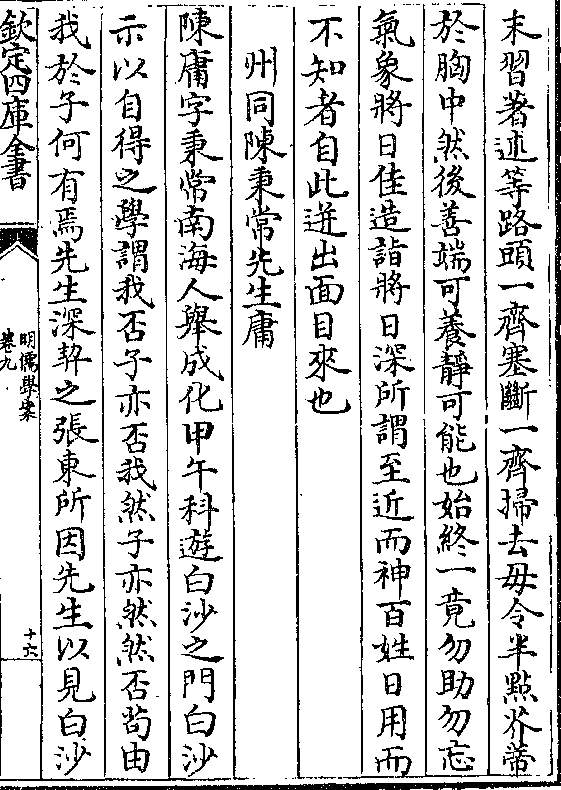 末習著述等路頭一齊塞斷一齊掃去毋令半點芥蔕
於胸中然後善端可養靜可能也始終一竟勿助勿忘
氣象將日佳造詣將日深所謂至近而神百姓日用而
不知者自此迸出面目來也
州同陳秉常先生庸
陳庸字秉常南海人舉成化甲午科遊白沙之門白沙
示以自得之學謂我否子亦否我然子亦然然否茍由
我於子何有焉先生深契之張東所因先生以見白沙
欽定四庫全書
明儒學案
卷九
十六